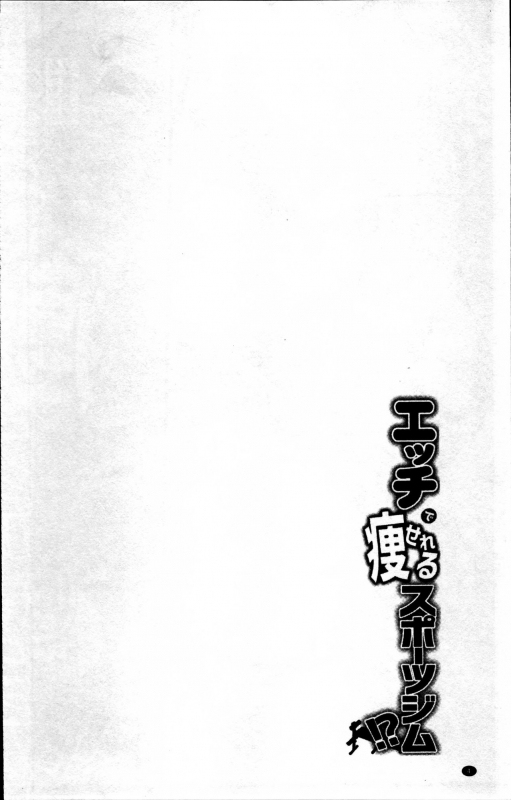 エッチで痩せれるスポーツジム!?
1